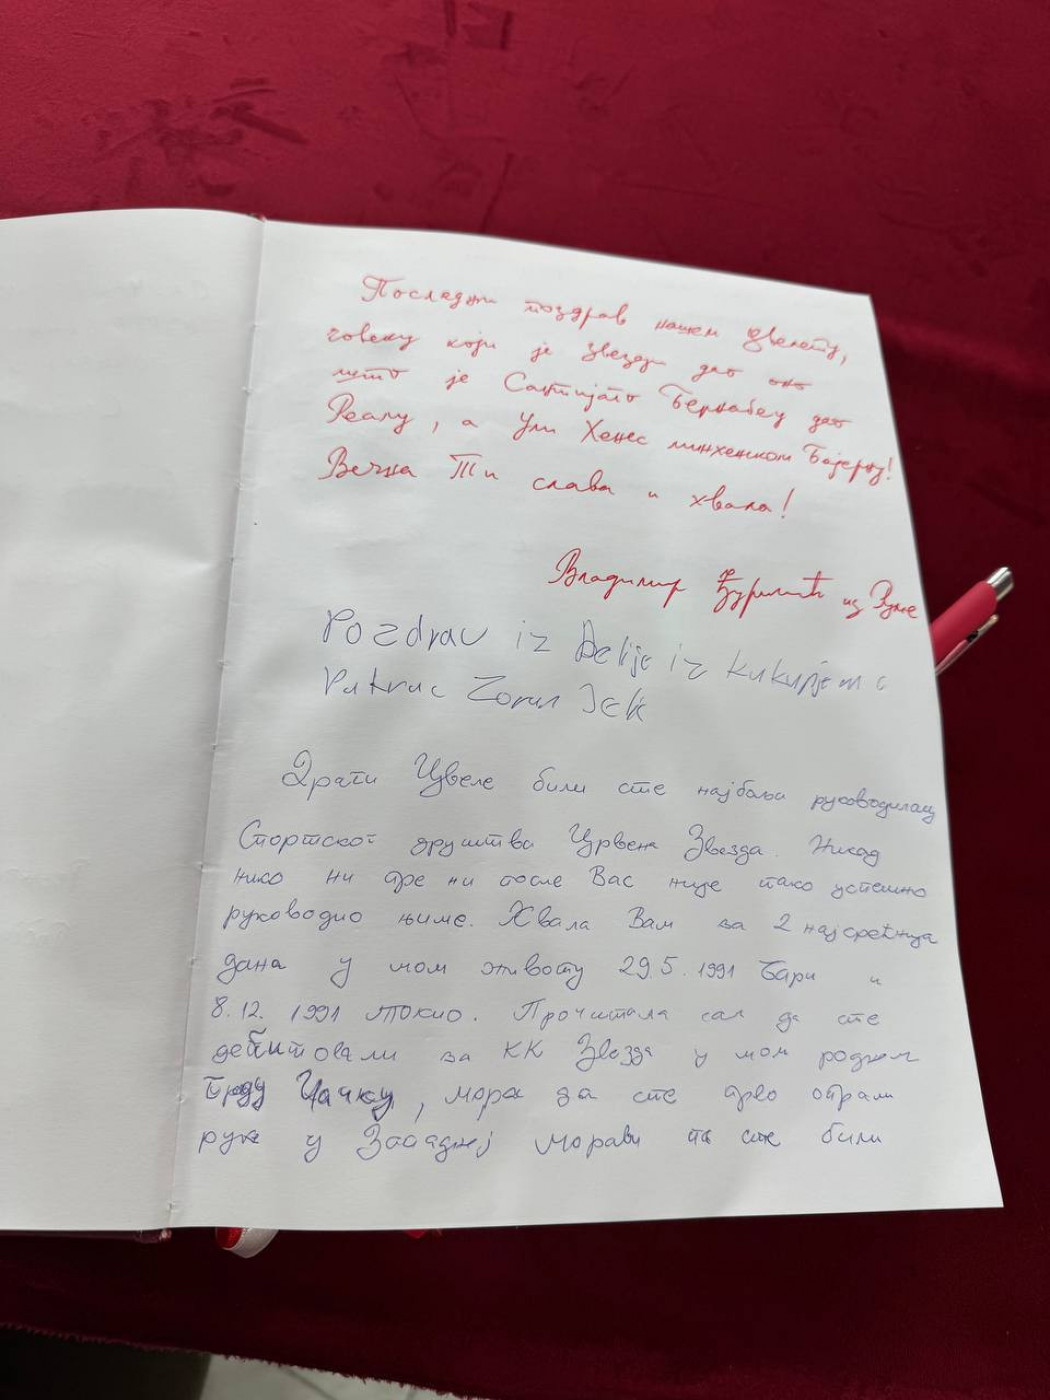 Последњи поздрав нашем Цвелету,
човеку који је Звезди дао оно
што је Сантијаго Бернабеу дао
Реалу, а Ули Хенес минхенском Бајерну!
Вечна Ти слава и хвала!
Владимир Ђуришић из Руме
Pozdrav iz Delije iz
Zoran
Драги Цвеле били сте најбољи руководилац
Спортског друштва Црвена Звезда. Никад
нико ни пре ни после Вас није тако успешно
руководио њиме. Хвала Вам за 2 најсрећнија
дана у мом животу 29.5.1991 Бари и
8.12.1991 Токио. Прочитала сам да сте
дебитовали за КК Звезда у мом родном
граду Чачку, мора да сте прво опрали
руке у Западној Морави па сте били